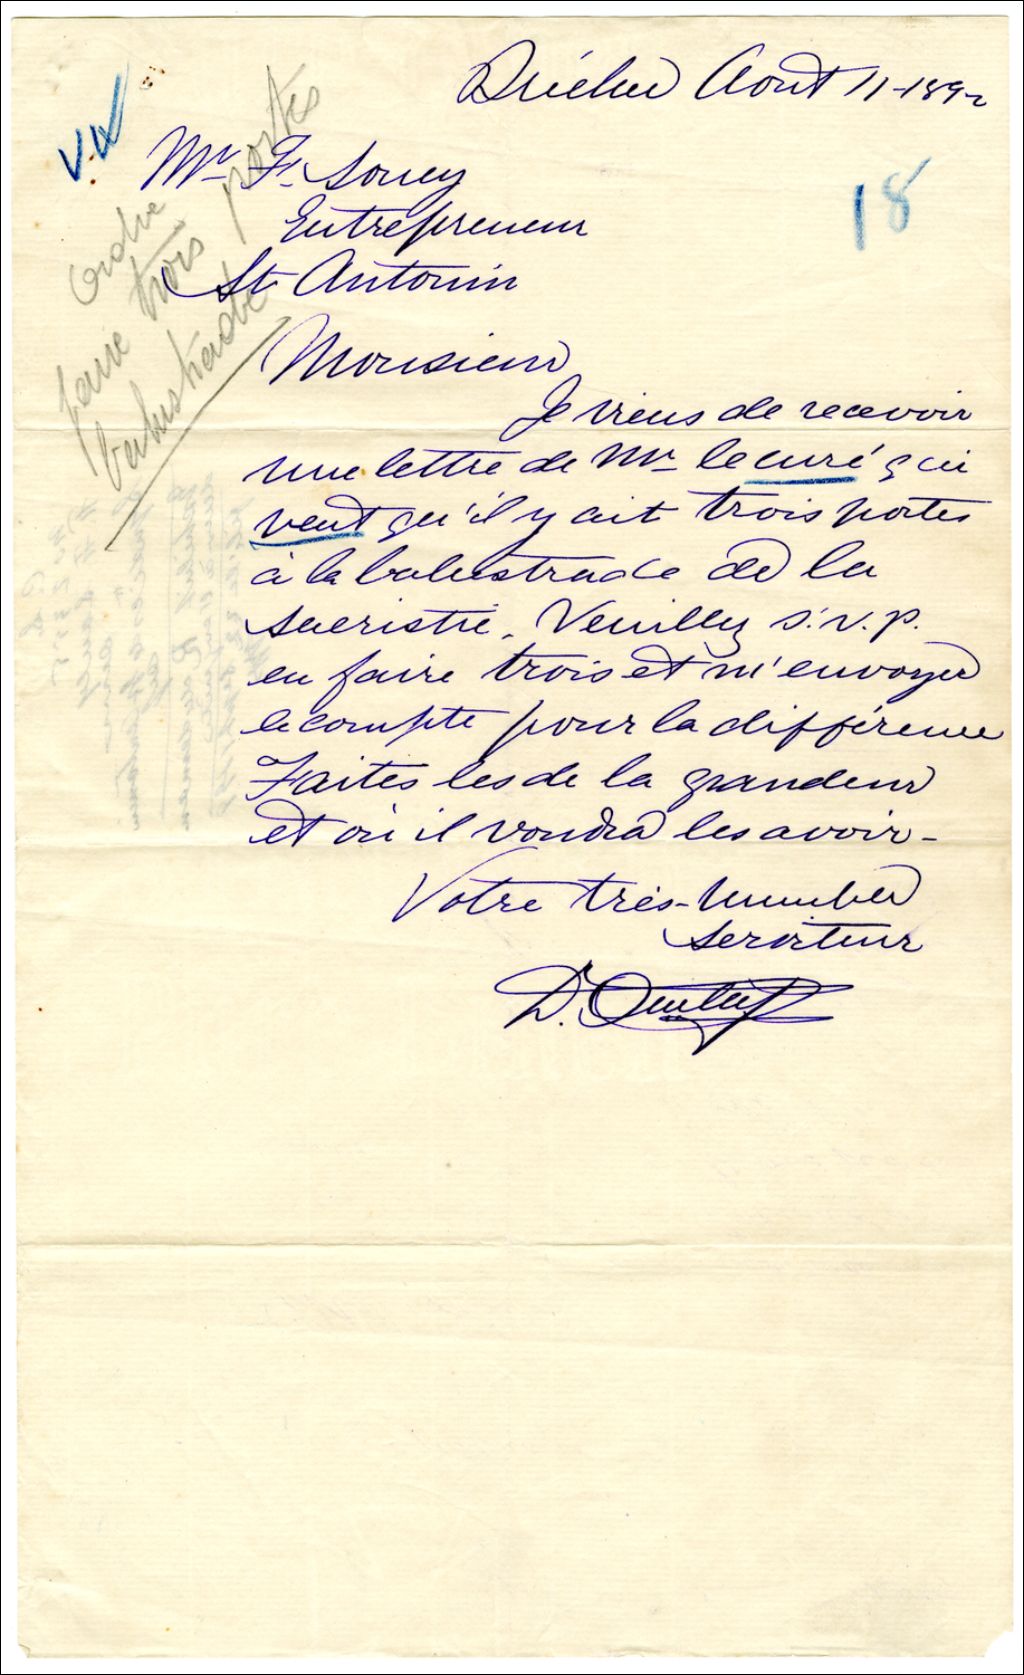 Québec Aout 11-1892
18
Mr F. Soucy
Entrepreneur
St Antonin
ordre
faire trois portes
balustrade
Monsieur
Je viens de recevoir
une lettre de Mr le curé qui
veut qu'il y ait trois portes
à la balustrade de la
sacristie. Veuillez s.v.p.
en faire trois et m'envoyer
le compte pour la différence
Faites les de la grandeur
et où il voudra les avoir-
Votre très-humble
serviteur
D. Ouellet